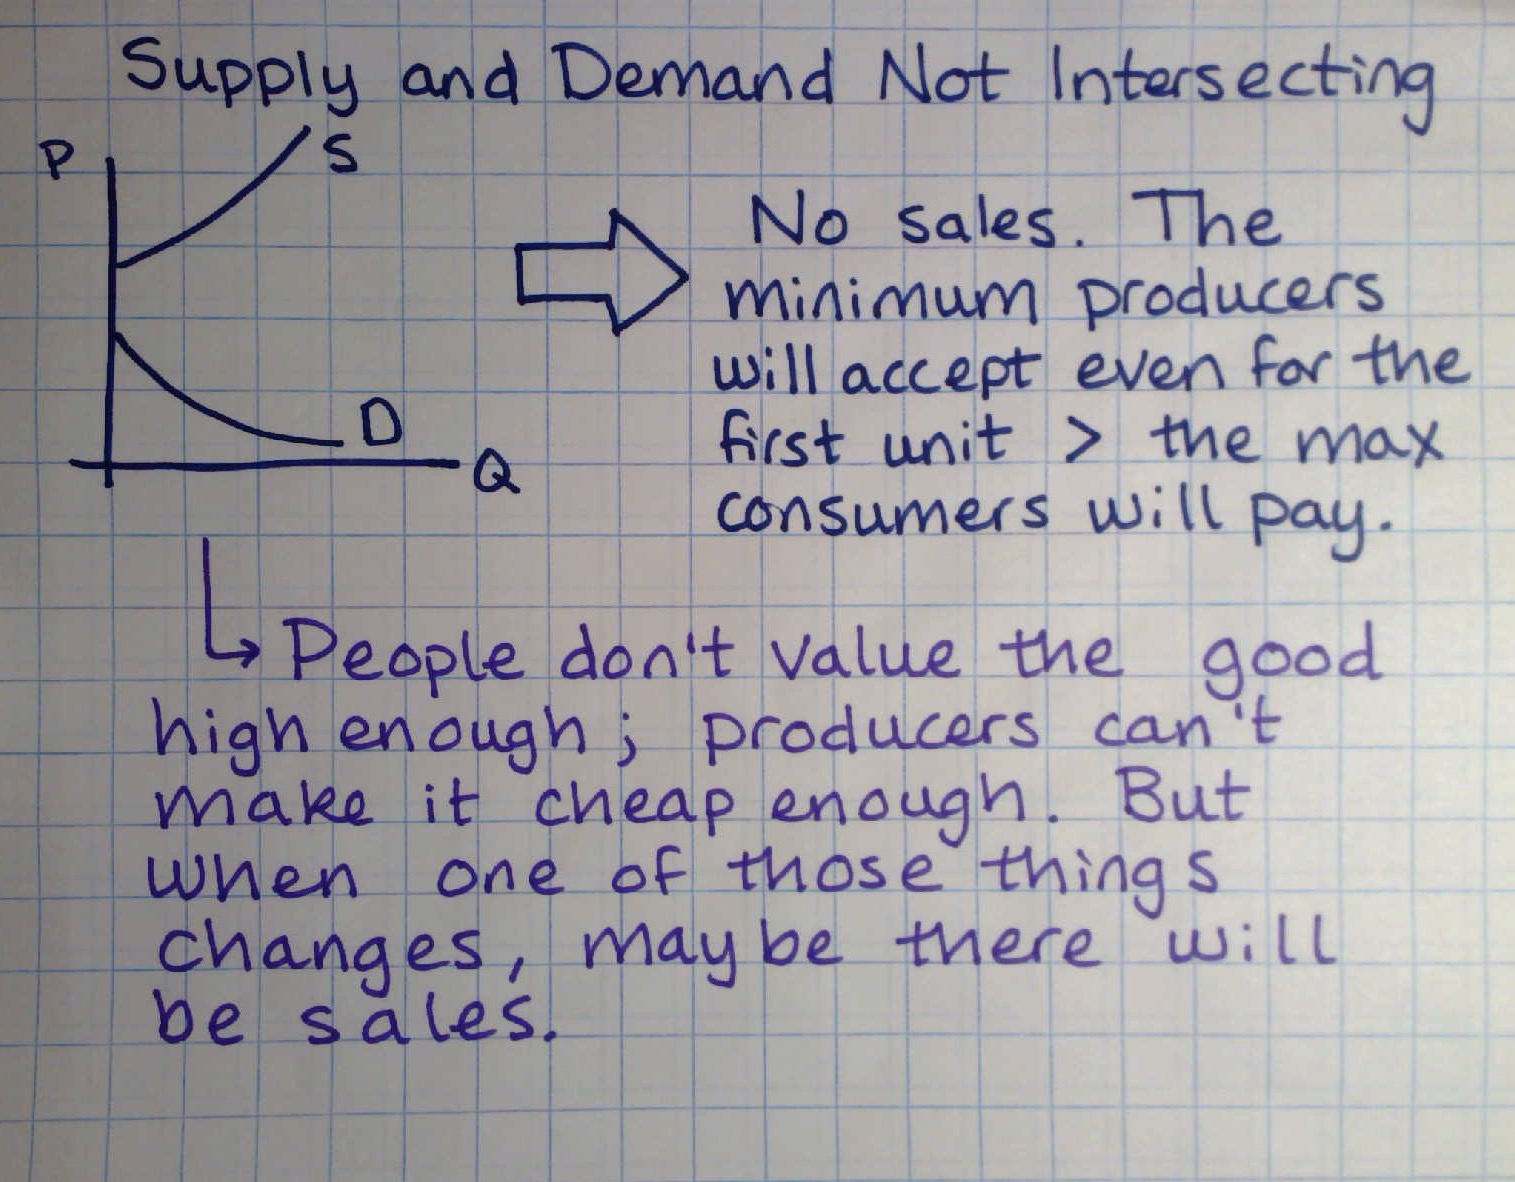 Supply and Demand Not Intersecting
P
S
D
Q
No sales. The
minimum producers
will accept even for the
first unit > the max
consumers will pay.
People don't value the good
high enough; producers can't
make it cheap enough. But
when one of those things
changes, maybe there will
be sales.